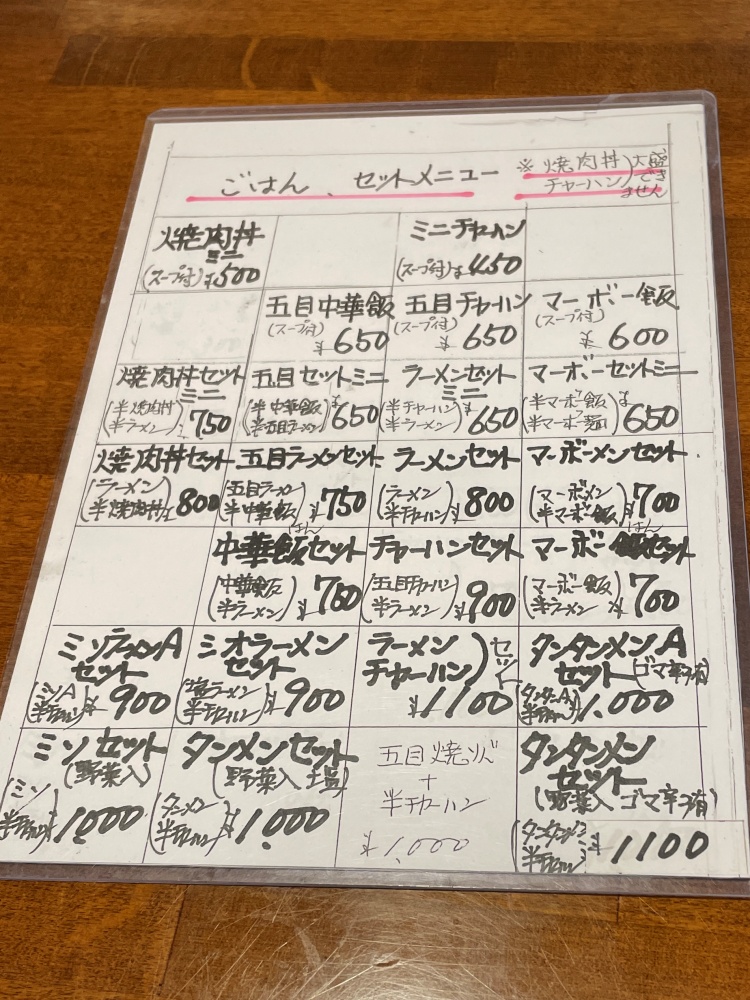 ごはん、セットメニュー
※焼肉丼
チャーハン
大盛
でき
ません
焼肉丼
ミニ
(スープ付)¥500
ミニチャーハン
(スープ付)¥450
五目中華飯
(スープ付)
¥650
五目チャーハン
(スープ付)
¥650
マーボー飯
(スープ付)
¥600
焼肉丼セット
ミニ
(半焼肉丼
半ラーメン)
¥750
五目セットミニ
(半中華飯
半五目ラーメン)
¥650
ラーメンセット
ミニ
(半チャーハン
半ラーメン)
¥650
マーボーセットミニ
(半マーボー飯
半マーボー麺)
¥650
焼肉丼セット
(ラーメン
半焼肉丼)
¥800
五目ラーメンセット
(五目ラーメン
半中華飯)
¥750
ラーメンセット
(ラーメン
半チャーハン)
¥800
マーボーメンセット
(マーボーメン
半マーボー飯)
¥700
はん
中華飯セット
(中華飯
半ラーメン)
¥750
チャーハンセット
(五目チャーハン
半ラーメン)
¥900
はん
マーボー飯セット
(マーボー飯
半ラーメン)
¥700
ミソラーメンA
セット
(ミソA
半チャーハン)
¥900
シオラーメン
セット
(塩ラーメン
半チャーハン)
¥900
ラーメン
チャーハン)セット
¥1100
タンタンメンA
セット(ゴマ辛有)
(タンタンA
半チャーハン)
¥1.000
ミソセット
(野菜入)
(ミソ
半チャーハン)
¥1.000
タンメンセット
(野菜入塩)
(タンメン
半チャーハン)
¥1.000
五目焼ソバ
+
半チャーハン
¥1,000
タンタンメン
セット
(野菜入ゴマ辛有)
(タンタンメン
半チャーハン)
¥1100